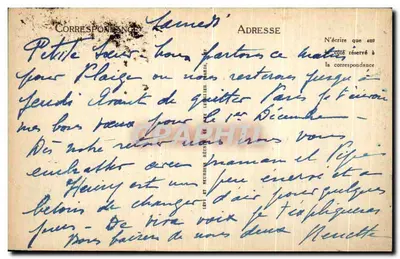 CORRESPONDANCE
Samedi
ADRESSE
N'écrire que sur
le côté réservé à
la correspondance
Petite sœur, Nous partons ce matin
pour où nous resterons jusqu'à
jeudi Avant de quitter Paris je t'envoie
mes bons vœux pour le 1er Décembre –
Dès notre retour nous irons vous
embrasser avec maman et
est un peu énervé et a
besoin de changer d'air pour quelques
jours – De vive voix je t'expliquerai
Bons baisers de nous deux